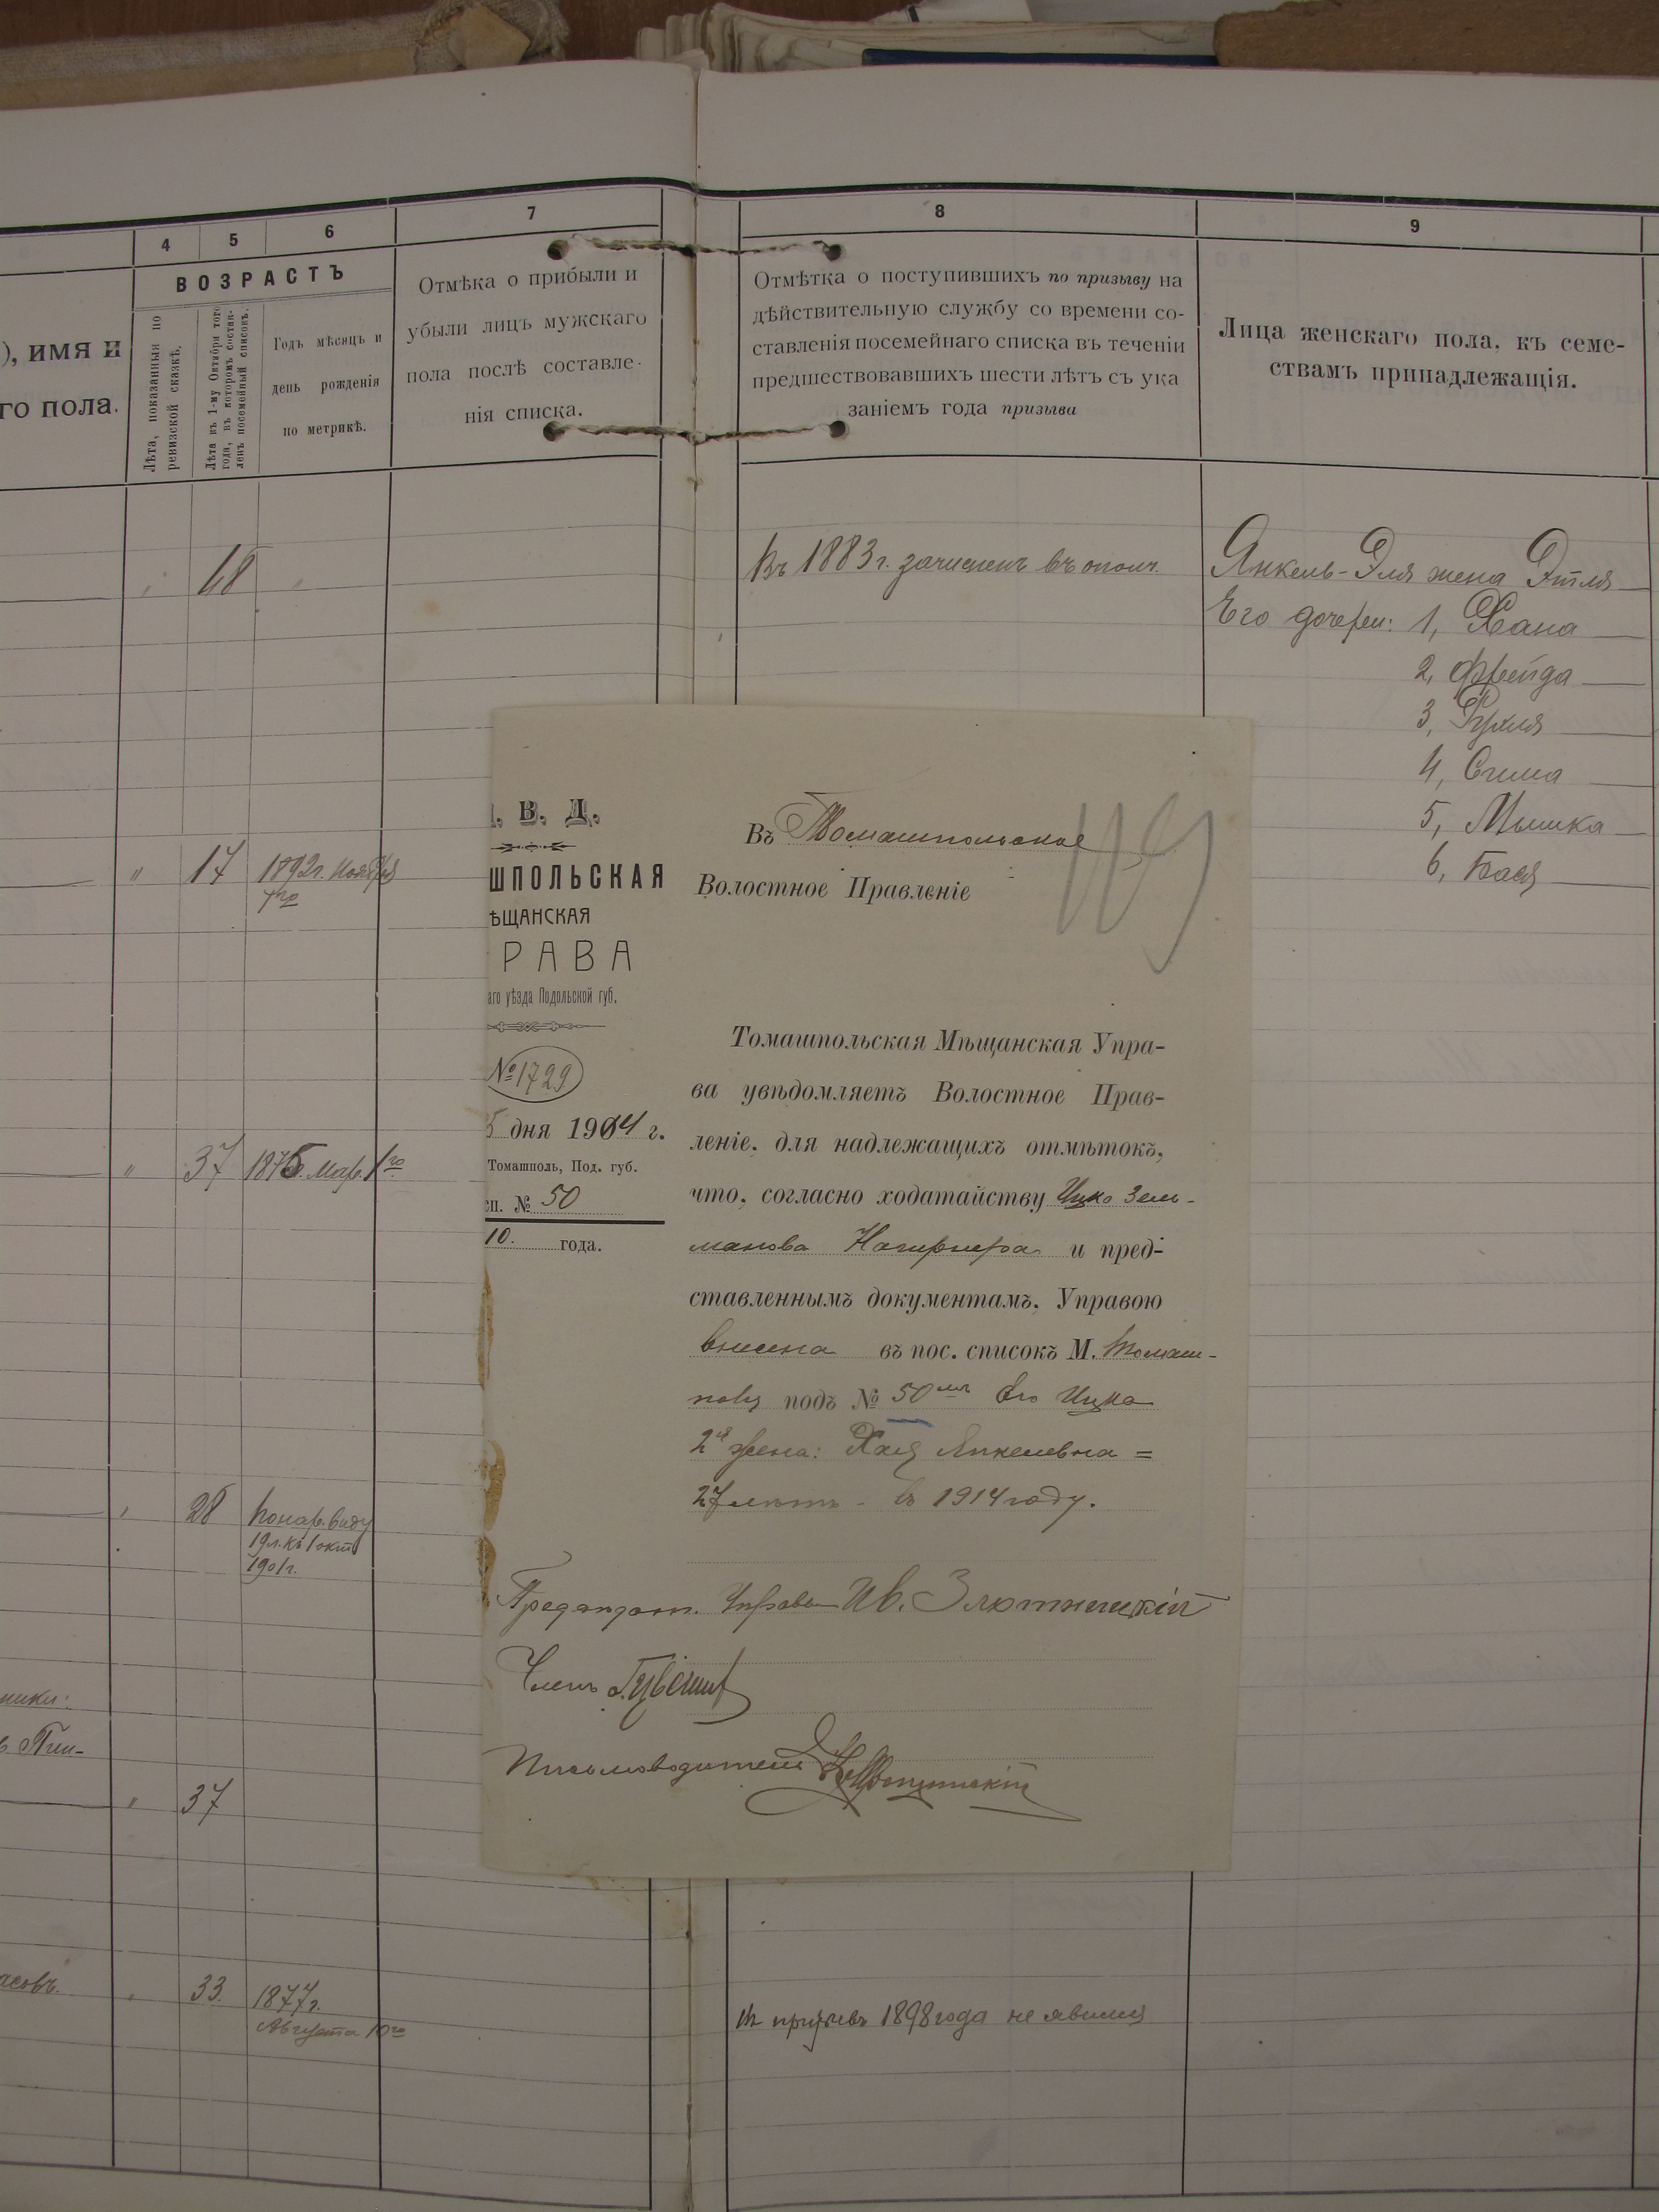 4
5
6
7
8
9
ВОЗРАСТЪ
), имя и
го пола.
Лѣта, показанныя по
ревизской сказкѣ.
Лѣта къ 1-му Октября того
года, въ которомъ состав-
ленъ посемейный списокъ.
Годъ мѣсяцъ и
день рожденія
по метрикѣ.
Отмѣка о прибыли и
убыли лицъ мужскаго
пола послѣ составле-
нія списка.
Отмѣтка о поступившихъ по призыву на
дѣйствительную службу со времени со-
ставленія посемейнаго списка въ теченіи
предшествовавшихъ шести лѣтъ съ ука
заніемъ года призыва
Лица женскаго пола, къ семе-
ствамъ принадлежащія.
" 48 "
Въ 1883 г. зачисленъ въ ополч.
Янкель-Эля жена Этля
Его дочери: 1, Хана
2, Фрейда
3, Рухля
4, Сима
5, Мышка
6, Бася
" 17 1892г. Ноября
7го
" 37 1875. Мар. 1го
" 28 По нар. виду
19 л. къ 1 окт
1901 г.
ники:
37
асовъ.
" 33 1877г.
Августа 10го
Къ призыву 1898 года не явился
. В. Д.
ШПОЛЬСКАЯ
ѢЩАНСКАЯ
РАВА
аго уѣзда Подольской губ.
№ 1729
5 дня 1914 г.
Томашполь, Под. губ.
сп. № 50
10. года.
Въ Томашпольское
Волостное Правленіе
Томашпольская Мѣщанская Упра-
ва увѣдомляетъ Волостное Прав-
леніе, для надлежащихъ отмѣтокъ,
что, согласно ходатайству Ицко Зель-
манова Нагирнера и пред-
ставленнымъ документамъ, Управою
внесена въ пос. списокъ М. Томаш-
поля подъ № 50мъ его Ицка
2я жена: Хая Янкелевна =
27 лѣтъ - въ 1914 году.
Председат. Управы Ив. Злотницкій
Членъ
Письмоводитель